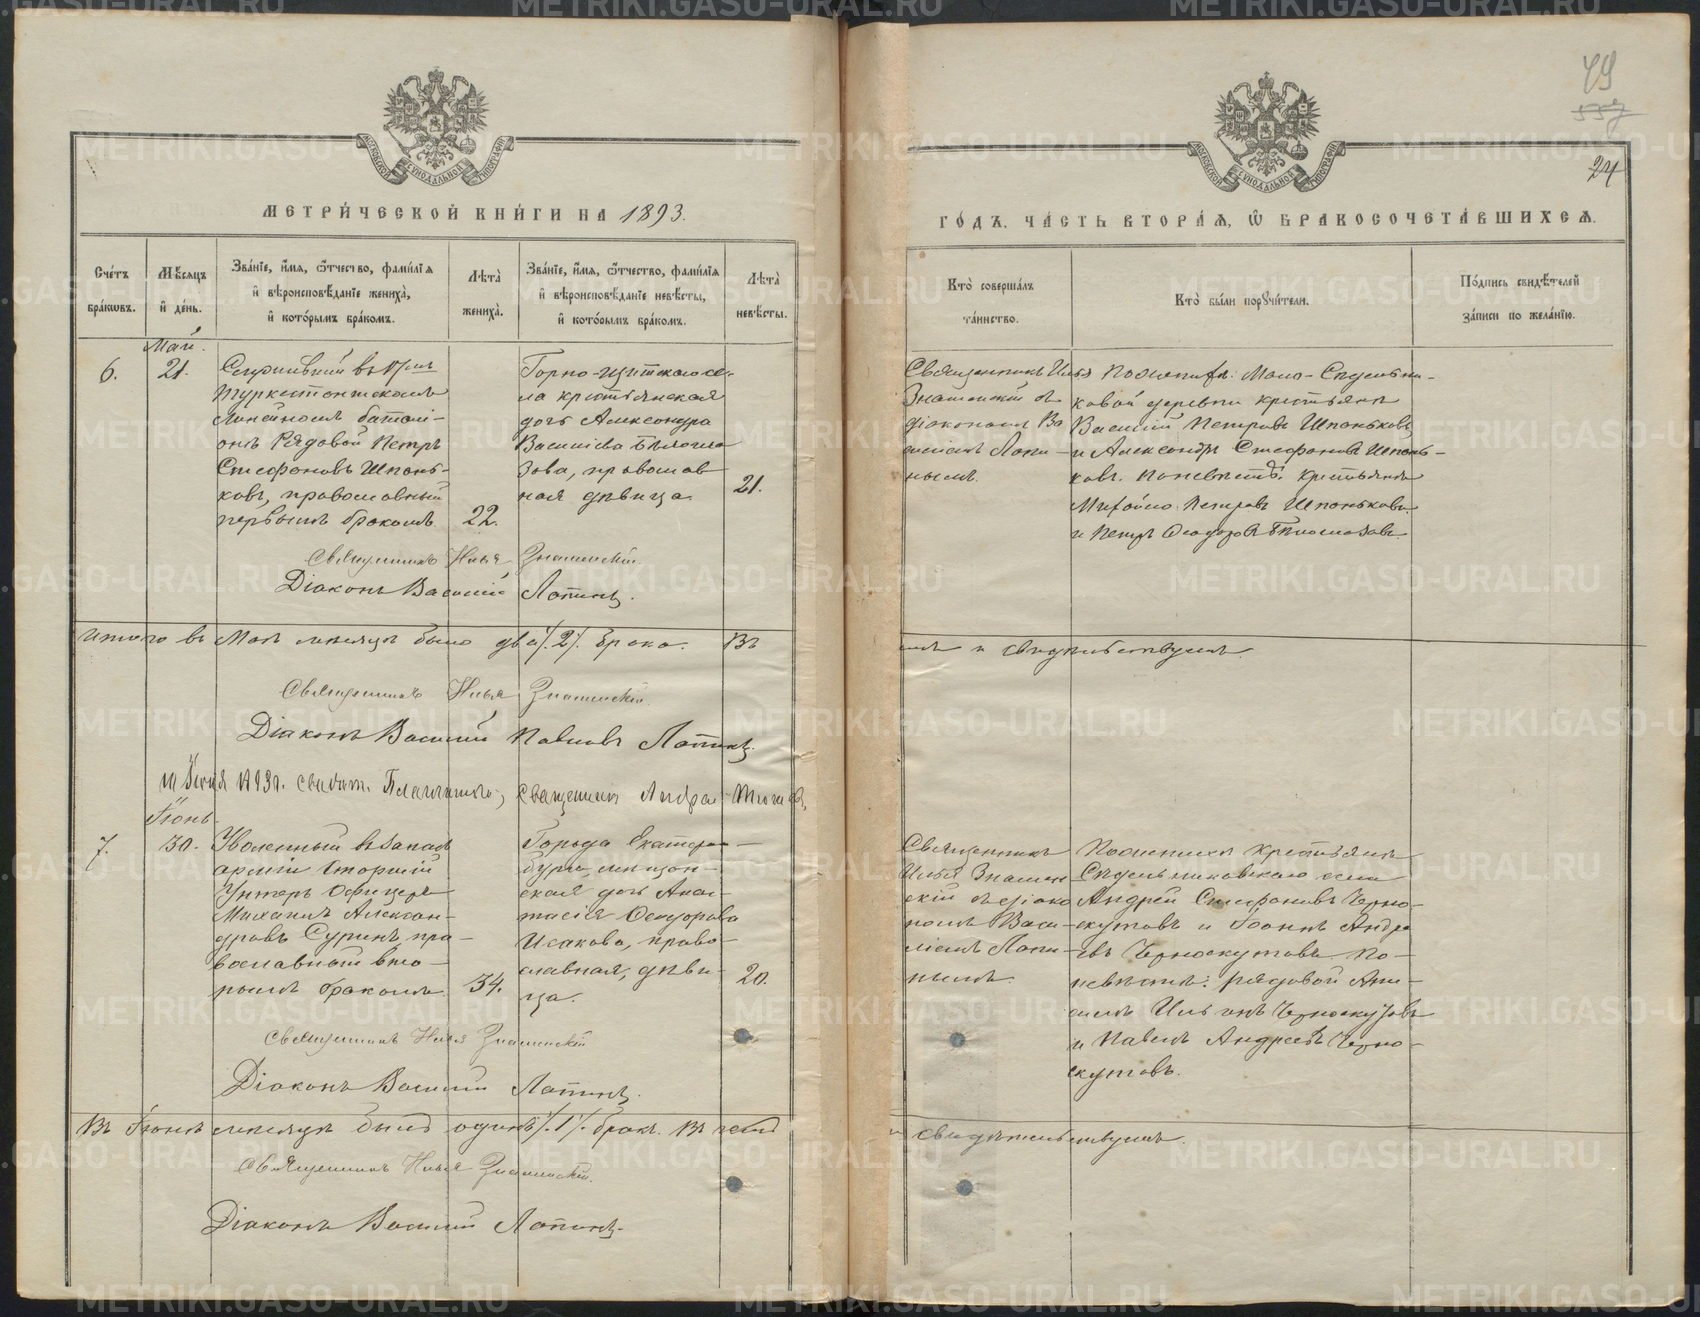 49
557
24
МОСКОВСКОЙ СѴНОДАЛЬНОЙ ТИПОГРАФІИ
МОСКОВСКОЙ СѴНОДАЛЬНОЙ ТИПОГРАФІИ
МЕТРИ́ЧЕСКОЙ КНИ́ГИ НА 1893.
ГО́ДЪ, ЧА́СТЬ ВТОРА́Я, Ѡ҆ БРАКОСОЧЕТА́ВШИХСЯ.
Сче́тъ
бра́кѡвъ.
Мѣ́сяцъ
и҆ де́нь.
Зва́нїе, и҆́мя, ѻ҆́тчество, фами́лїя
и҆ вѣроисповѣ́данїе жениха̀,
и҆ кото́рымъ бра́комъ.
Лѣта̀
жениха̀.
Зва́нїе, и҆́мя, ѻ҆́тчество, фами́лїя
и҆ вѣроисповѣ́данїе невѣ́сты,
и҆ кото́рымъ бра́комъ.
Лѣта̀
невѣ́сты.
Кто̀ соверша́лъ
та́инство.
Кто̀ бы́ли порꙋчи́тели.
По́дпись свидѣ́телей
за́писи по жела́нїю.
6.
Май.
21.
Служившій въ 17мъ
Туркестанскомъ
Линейномъ баталі-
онѣ Рядовой Петръ
Стефановъ Шпонь-
ковъ, православный
первымъ бракомъ.
22.
Горно-Щитскаго се-
ла крестьянская
дочь Александра
Василіева Бѣлогла
зова, православ
ная дѣвица.
21.
Священникъ Илья
Знаменскій съ
діакономъ Ва
силіемъ Лопи-
нымъ.
По женихѣ: Мало-Сѣдельни-
ковой деревни крестьяне
Василій Петровъ Шпоньковъ
и Александръ Стефановъ Шпонь-
ковъ. По невѣстѣ: крестьяне
Михайло Петровъ Шпоньковъ
и Петръ Ѳеодоровъ Бѣлоглазовъ.
Священникъ Илья Знаменскій
Діаконъ Василій Лопинъ.
Итого въ Маѣ мѣсяцѣ было два /2/ брака. Въ
чемъ и свидѣтельствуемъ.
Священникъ Илья Знаменскій.
Діаконъ Василій Павловъ Лопинъ.
Іюня 1893г. Священникъ
7.
Іюнь
30.
Уволенный въ запасъ
арміи Старшій
Унтеръ Офицеръ
Михаилъ Алексан-
дровъ Суринъ, пра-
вославный вто-
рымъ бракомъ.
34.
Города Екатерин-
бурга мѣщан-
ская дочь Анас-
тасія Ѳеодорова
Исакова, право-
славная, дѣви-
ца.
20.
Священникъ
Илья Знамен
скій съ діако
номъ Васи-
ліемъ Лопи-
нымъ.
По женихѣ крестьяне
Сѣдельниковскаго села
Андрей Стефановъ Черно-
скутовъ и Іоаннъ Андре
евъ Черноскутовъ. По
невѣстѣ: рядовой Ани-
симъ Черноскутовъ
и Павелъ Андреевъ Черно-
скутовъ.
Священникъ Илья Знаменскій
Діаконъ Василій Лопинъ.
Въ Іюнѣ мѣсяцѣ былъ одинъ /1/ бракъ. Въ чемъ
и свидѣтельствуемъ.
Священникъ Илья Знаменскій.
Діаконъ Василій Лопинъ.
METRIKI.GASO-URAL.RU